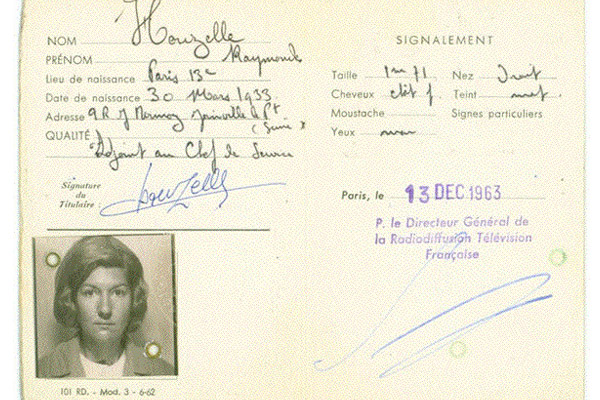 NOM Houzelle
PRÉNOM Raymonde
Lieu de naissance Paris 13e
Date de naissance 30 Mars 1933
Adresse 9 R J Mermoz Joinville le Pt
(Seine)
QUALITÉ
Adjoint au Chef de Service
Signature
du
Titulaire :
Houzelle
101 RD. - Mod. 3 - 6-62
SIGNALEMENT
Taille 1m71 Nez Droit
Cheveux chât f. Teint mat
Moustache Signes particuliers
Yeux
Paris, le 13 DEC 1963
P. le Directeur Général de
la Radiodiffusion Télévision
Française